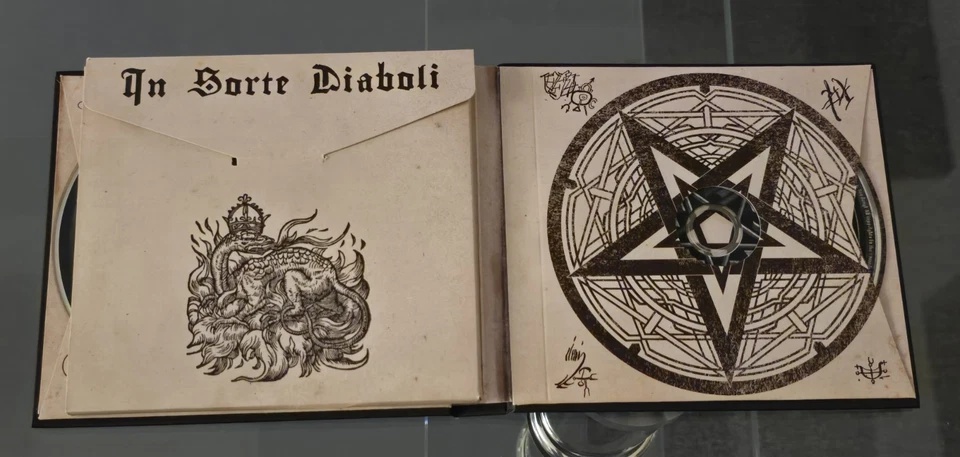 In Sorte Diaboli